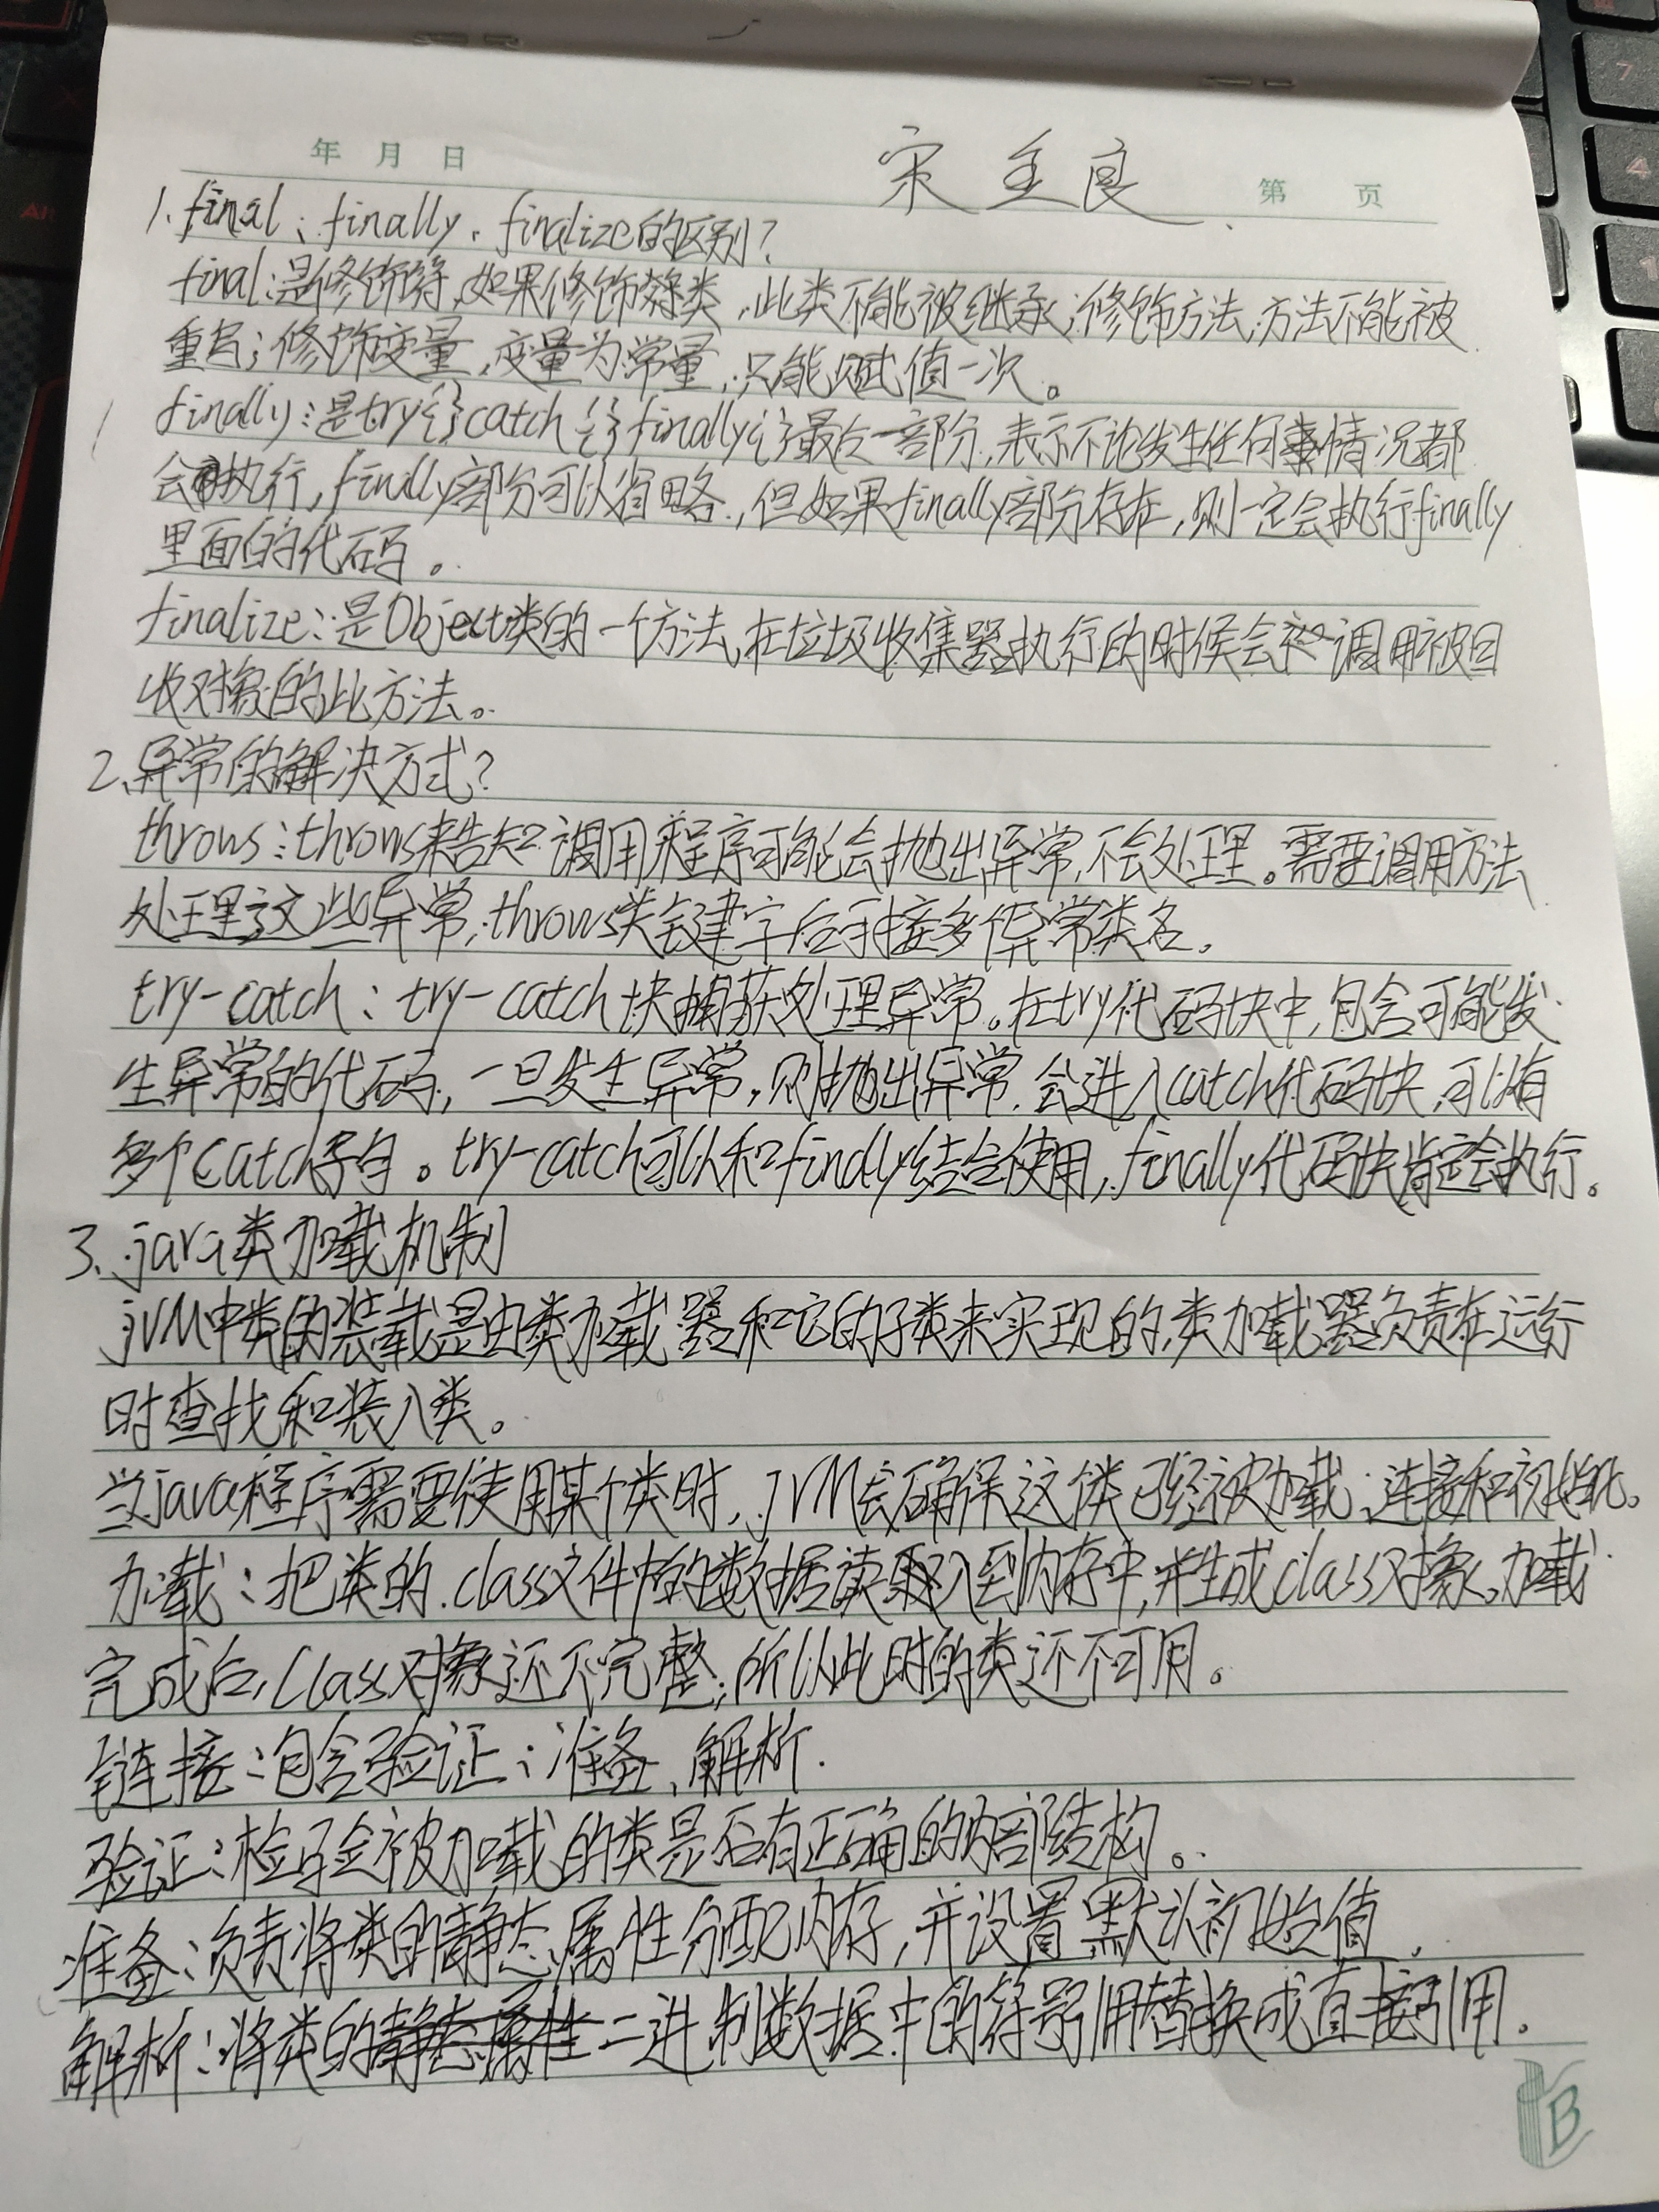 年 月 日
宋全良
第 页
1. final、finally、finalize的区别?
final:是修饰符,如果修饰类,此类不能被继承;修饰方法,方法不能被
重写;修饰变量,变量为常量,只能赋值一次。
finally:是try{}catch{}finally{}最后一部分,表示不论发生任何情况都
会执行,finally部分可以省略,但如果finally部分存在,则一定会执行finally
里面的代码。
finalize:是Object类的一个方法,在垃圾收集器执行的时候会调用被回
收对象的此方法。
2、异常的解决方式?
throws:throws来告知调用程序可能会抛出异常,不会处理。需要调用方法
处理这些异常,throws关键字后可接多个异常类名。
try-catch:try-catch块捕获处理异常。在try代码块中,包含可能发
生异常的代码,一旦发生异常,则抛出异常,会进入catch代码块,可以有
多个catch子句。try-catch可以和finally结合使用,finally代码块肯定会执行。
3、java类加载机制
JVM中类的装载是由类加载器和它的子类来实现的,类加载器负责在运行
时查找和装入类。
当java程序需要使用某个类时,JVM会确保这个类已经被加载、连接和初始化。
加载:把类的.class文件中的数据读入到内存中,并生成class对象。加载
完成后,Class对象还不完整,所以此时的类还不可用。
链接:包含验证、准备、解析.
验证:检验被加载的类是否有正确的内部结构。
准备:负责将类的静态属性分配内存,并设置默认初始值.
解析:将类的二进制数据中的符号引用替换成直接引用。
B